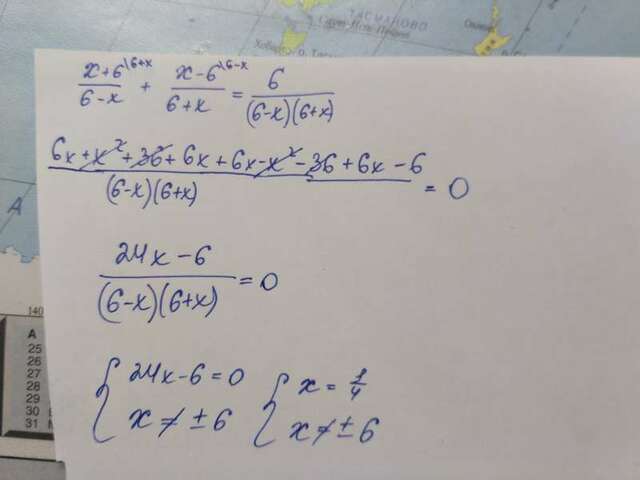 ТАСМАНОВО
(x+6)/(6-x) \6+x + (x-6)/(6+x) \6-x = 6/((6-x)(6+x))
(6x+x²+36+6x+6x-x²-36+6x-6)/((6-x)(6+x)) = 0
(24x-6)/((6-x)(6+x)) = 0
{ 24x-6=0 { x = 1/4
{ x ≠ ±6 { x ≠ ±6
A
140
A
25
26
27
28
29
30
31